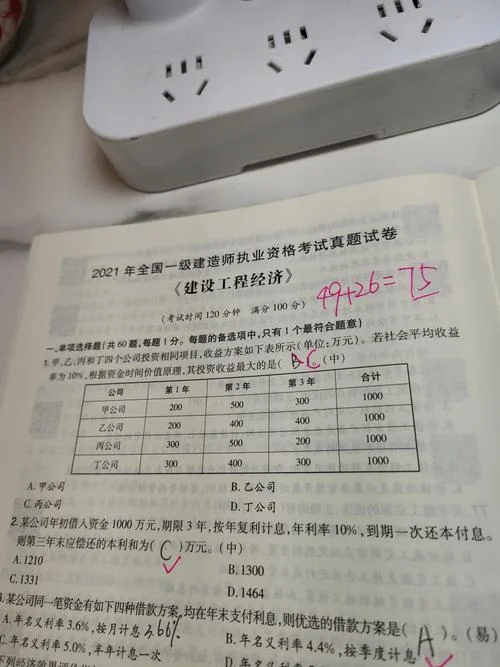 2021年全国一级建造师执业资格考试真题试卷
《建设工程经济》
(考试时间120分钟 满分100分)
49+26=75
一、单项选择题(共60题,每题1分。每题的备选项中,只有1个最符合题意)
1.甲、乙、丙和丁四个公司投资相同项目,收益方案如下表所示(单位:万元)。若社会平均收益
率为10%,根据资金时间价值原理,其投资收益最大的是( C )。(中)
公司 第1年 第2年 第3年 合计
甲公司 200 500 300 1000
乙公司 200 400 400 1000
丙公司 300 500 200 1000
丁公司 300 400 300 1000
A.甲公司 B.乙公司
C.丙公司 D.丁公司
2.某公司年初借入资金1000万元,期限3年,按年复利计息,年利率10%,到期一次还本付息。
则第三年末应偿还的本利和为( C )万元。(中)
A.1210 B.1300
C.1331 D.1464
3.某公司同一笔资金有如下四种借款方案,均在年末支付利息,则优选的借款方案是( A )。(易)
A.年名义利率3.6%,按月计息 3.60% B.年名义利率4.4%,按季度计息
C.年名义利率5.0%,半年计息一次